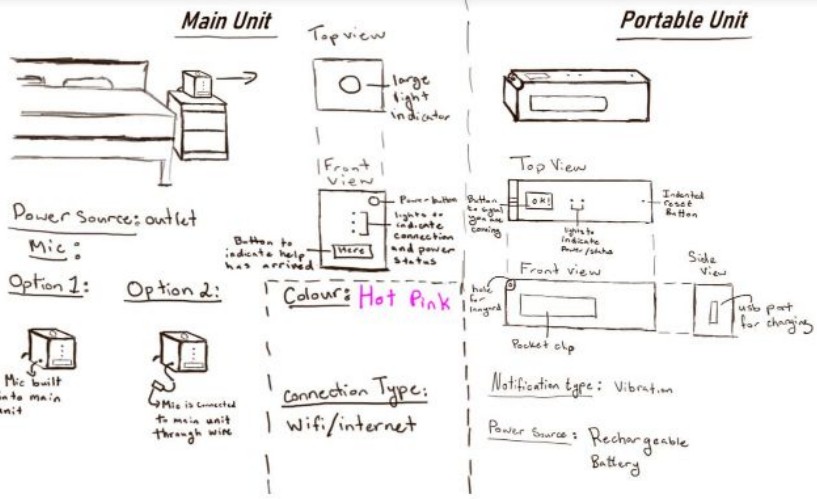 Main Unit
Top view
large
light
indicator
Front
View
Power button
lights to
indicate
connection
and power
status
Button to
indicate help
has arrived
Here
Power Source: outlet
Mic:
Option 1:
Option 2:
Mic built
into main
unit
Mic is connected
to main unit
through wire
Colour: Hot Pink
Connection Type:
Wifi/internet
Portable Unit
Top View
Button
to signal
you are
coming
OK!
lights to
indicate
Power/status
Indented
reset
Button
Front view
hole
for
lanyard
Pocket clip
Side
View
usb port
for charging
Notification type: Vibration
Power Source: Rechargeable
Battery